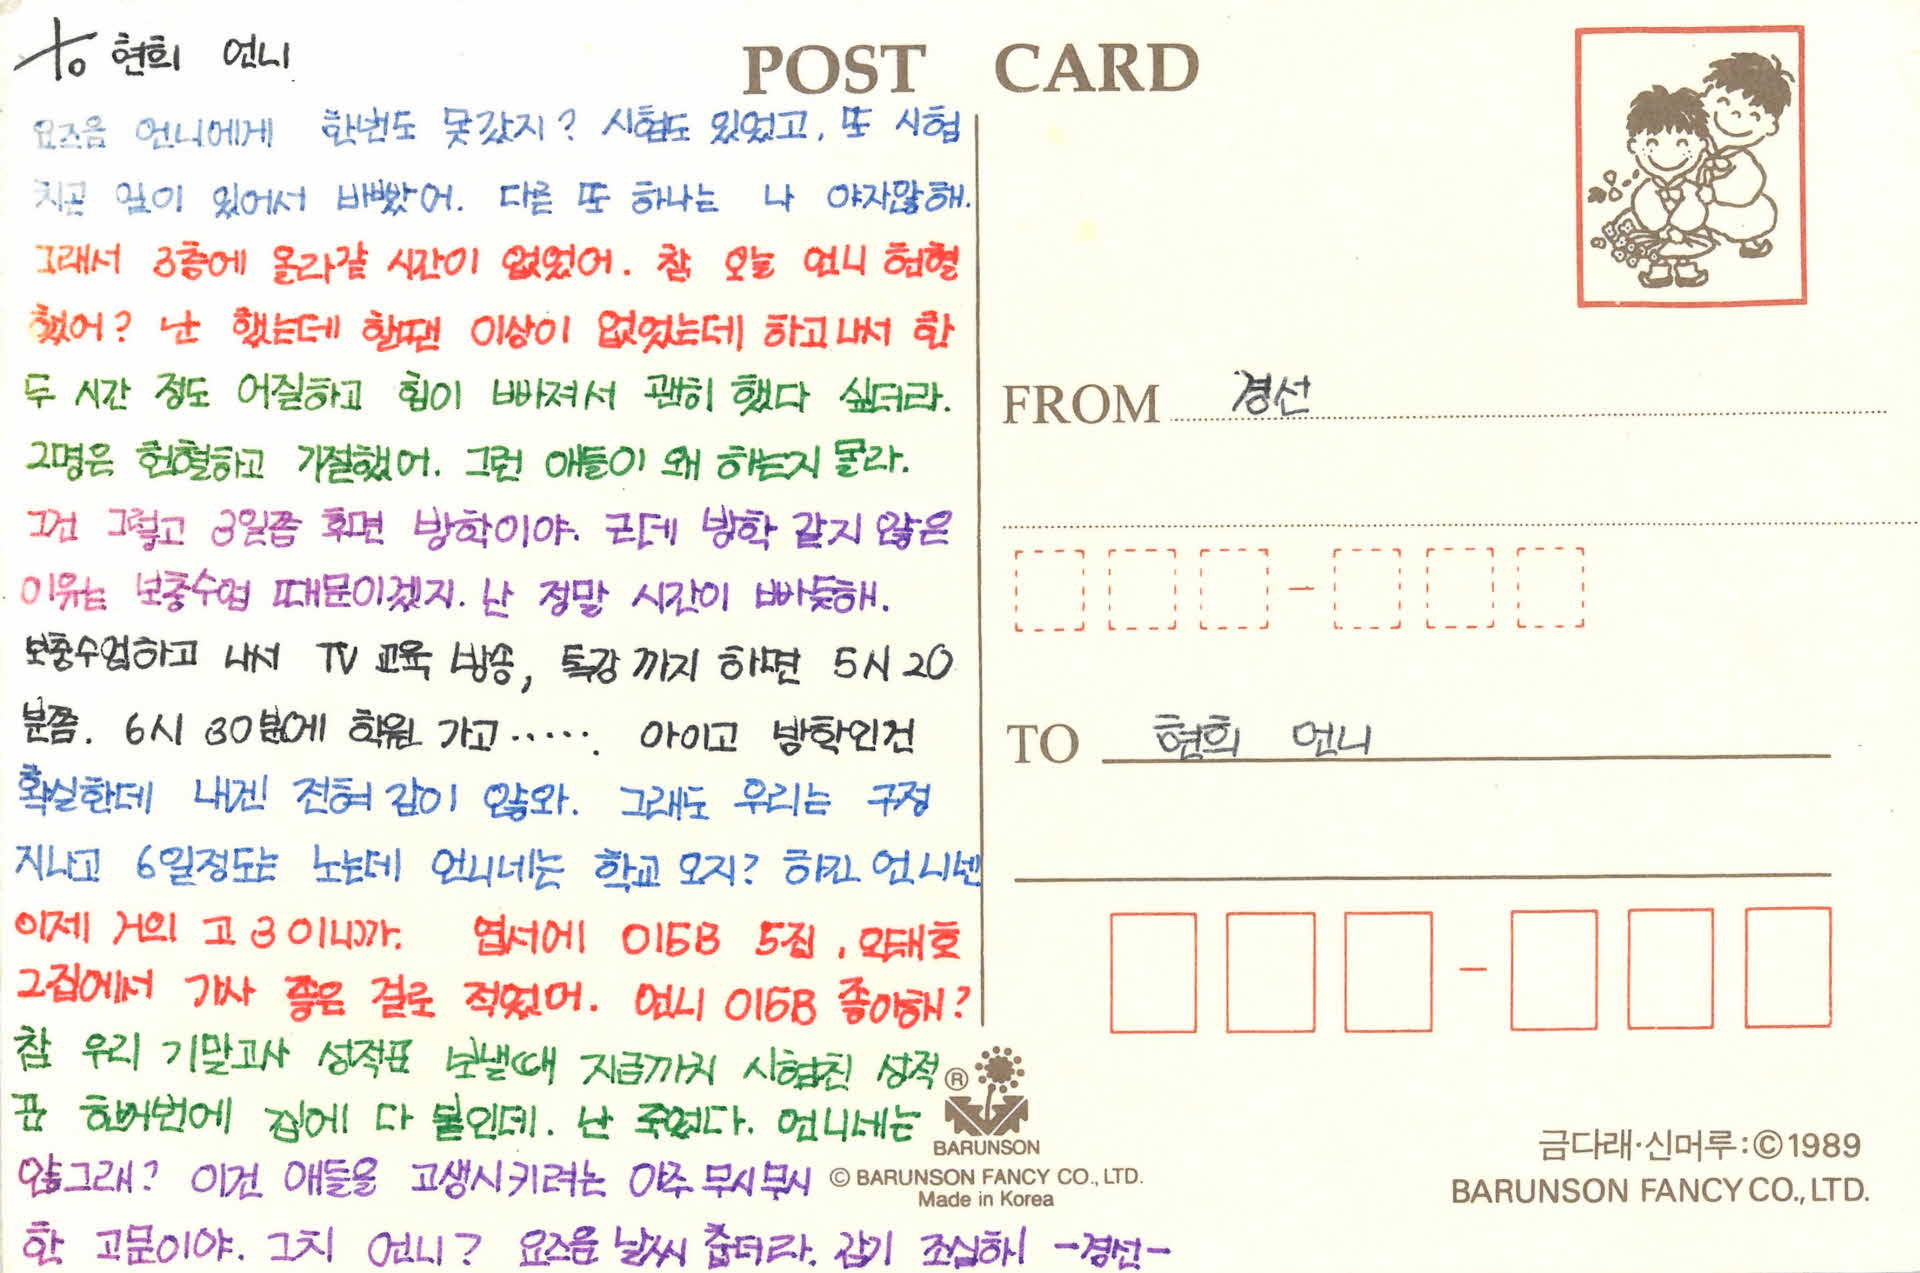 to 현희 언니
요즈음 언니에게 한번도 못갔지? 시험도 있었고, 또 시험
치곤 일이 있어서 바빴어. 다른 또 하나는 나 야자않해.
그래서 3층에 올라갈 시간이 없었어. 참 오늘 언니 헌혈
했어? 난 했는데 할땐 이상이 없었는데 하고나서 한
두 시간 정도 어질하고 힘이 빠져서 괜히 했다 싶더라.
2명은 헌혈하고 기절했어. 그런 애들이 왜 하는지 몰라.
그건 그렇고 3일쯤 후면 방학이야. 근데 방학 같지 않은
이유는 보충수업 때문이겠지. 난 정말 시간이 빠듯해.
보충수업하고 나서 TV 교육 방송, 특강까지 하면 5시 20
분쯤. 6시 30분에 학원 가고······. 아이고 방학인건
확실한데 내겐 전혀 감이 않와. 그래도 우리는 구정
지나고 6일정도는 노는데 언니네는 학교 오지? 하긴 언니넨
이제 거의 고3이니까. 엽서에 015B 5집, 오태호
그집에서 가사 좋은 걸로 적었어. 언니 015B 좋아해?
참 우리 기말고사 성적표 보낼때 지금까지 시험친 성적
표 한꺼번에 집에 다 붙인데. 난 죽었다. 언니네는
않그래? 이건 애들을 고생시키려는 아주 무시무시
한 고문이야. 그치 언니? 요즈음 날씨 춥더라. 감기 조심하 -경선-
POST CARD
FROM 경선
TO 현희 언니
®
BARUNSON
© BARUNSON FANCY CO., LTD.
Made in Korea
금다래·신머루:©1989
BARUNSON FANCY CO., LTD.